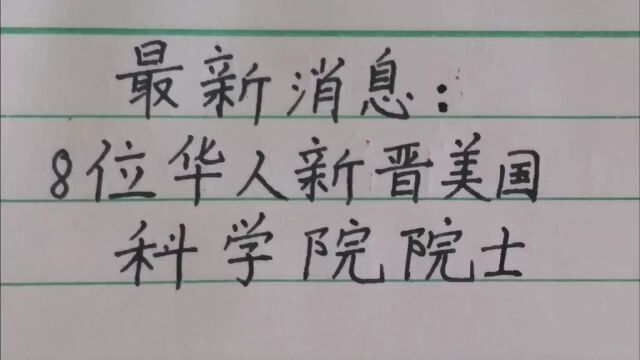 最新消息:
8位华人新晋美国
科学院院士